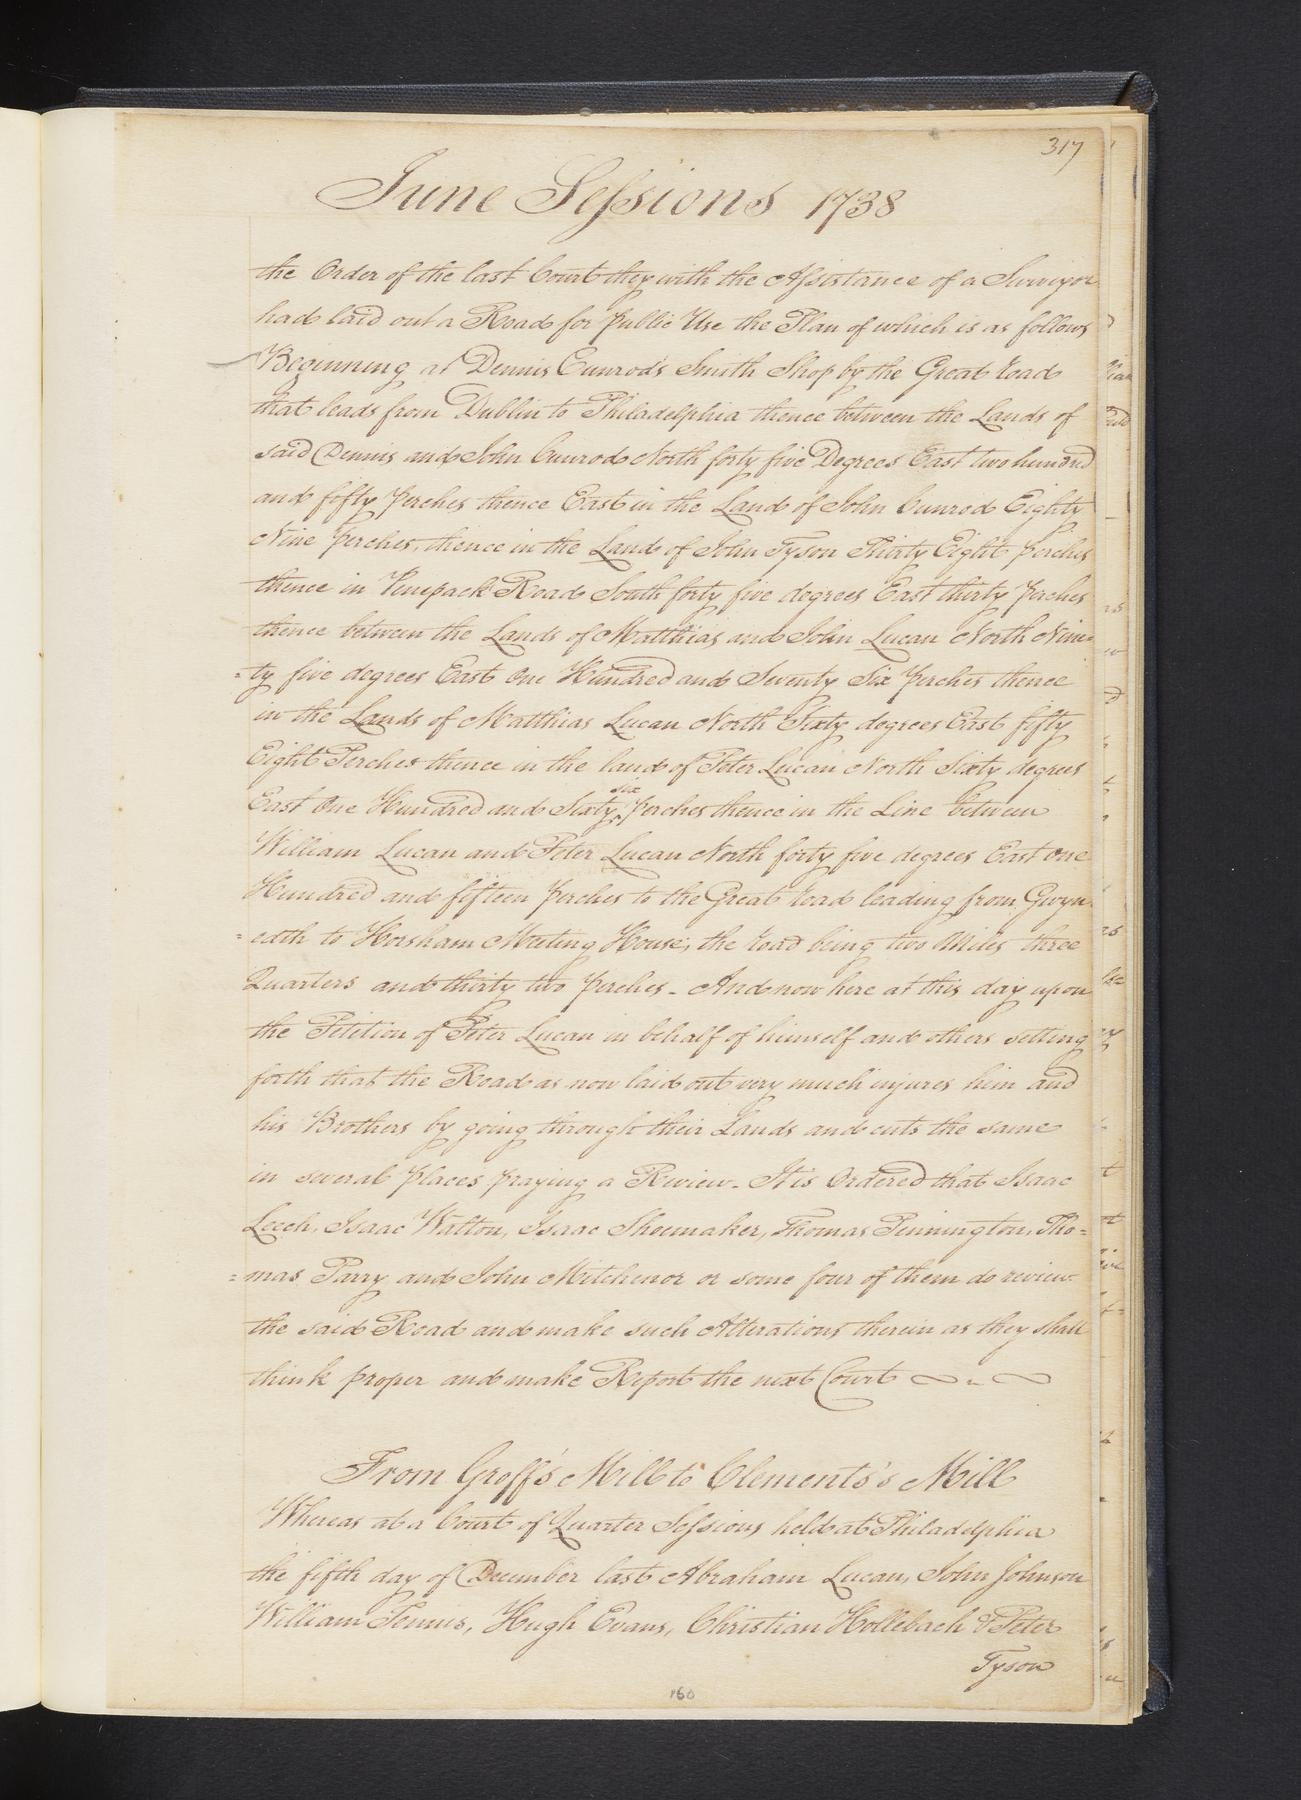 317
June Sessions 1738
the Order of the last Court they with the Assistance of a Surveyor
had laid out a Road for public Use the Plan of which is as follows
Beginning at Dennis Cunrod's Smith Shop by the Great road
that leads from Dublin to Philadelphia thence between the Lands of
said Dennis and John Cunrod North forty five Degrees East two hundred
and fifty perches thence East in the Land of John Cunrod Eighty
Nine perches, thence in the Land of John Tyson Thirty Eight perches
thence in Pennpack Road South forty five degrees East thirty perches
thence between the Lands of Matthias and John Lucan North Nine=
=ty five degrees East One Hundred and Seventy Six perches thence
in the Lands of Matthias Lucan North Sixty degrees East fifty
Eight Perches thence in the land of Peter Lucan North Sixty degrees
East One Hundred and Sixty six perches thence in the Line between
William Lucan and Peter Lucan North forty five degrees East one
Hundred and fifteen perches to the Great road leading from Gwyn
=edth to Horsham Meeting House, the road being two Miles three
Quarters and thirty two perches - And now here at this day upon
the Petition of Peter Lucan in behalf of himself and others setting
forth that the Road as now laid out very much injures him and
his Brothers by going through their Lands and cuts the same
in several places praying a Review - It is Ordered that Isaac
Leech, Isaac Walton, Isaac Shoemaker, Thomas Pennington, Tho=
=mas Parry and John Mitchenor or some four of them do review
the said Road and make such Alterations therein as they shall
think proper and make Report the next Court
From Groff's Mill to Clements's Mill
Whereas at a Court of Quarter Sessions held at Philadelphia
the fifth day of December last Abraham Lucan, John Johnson
William Tennis, Hugh Evans, Christian Hollebach & Peter
Tyson
160